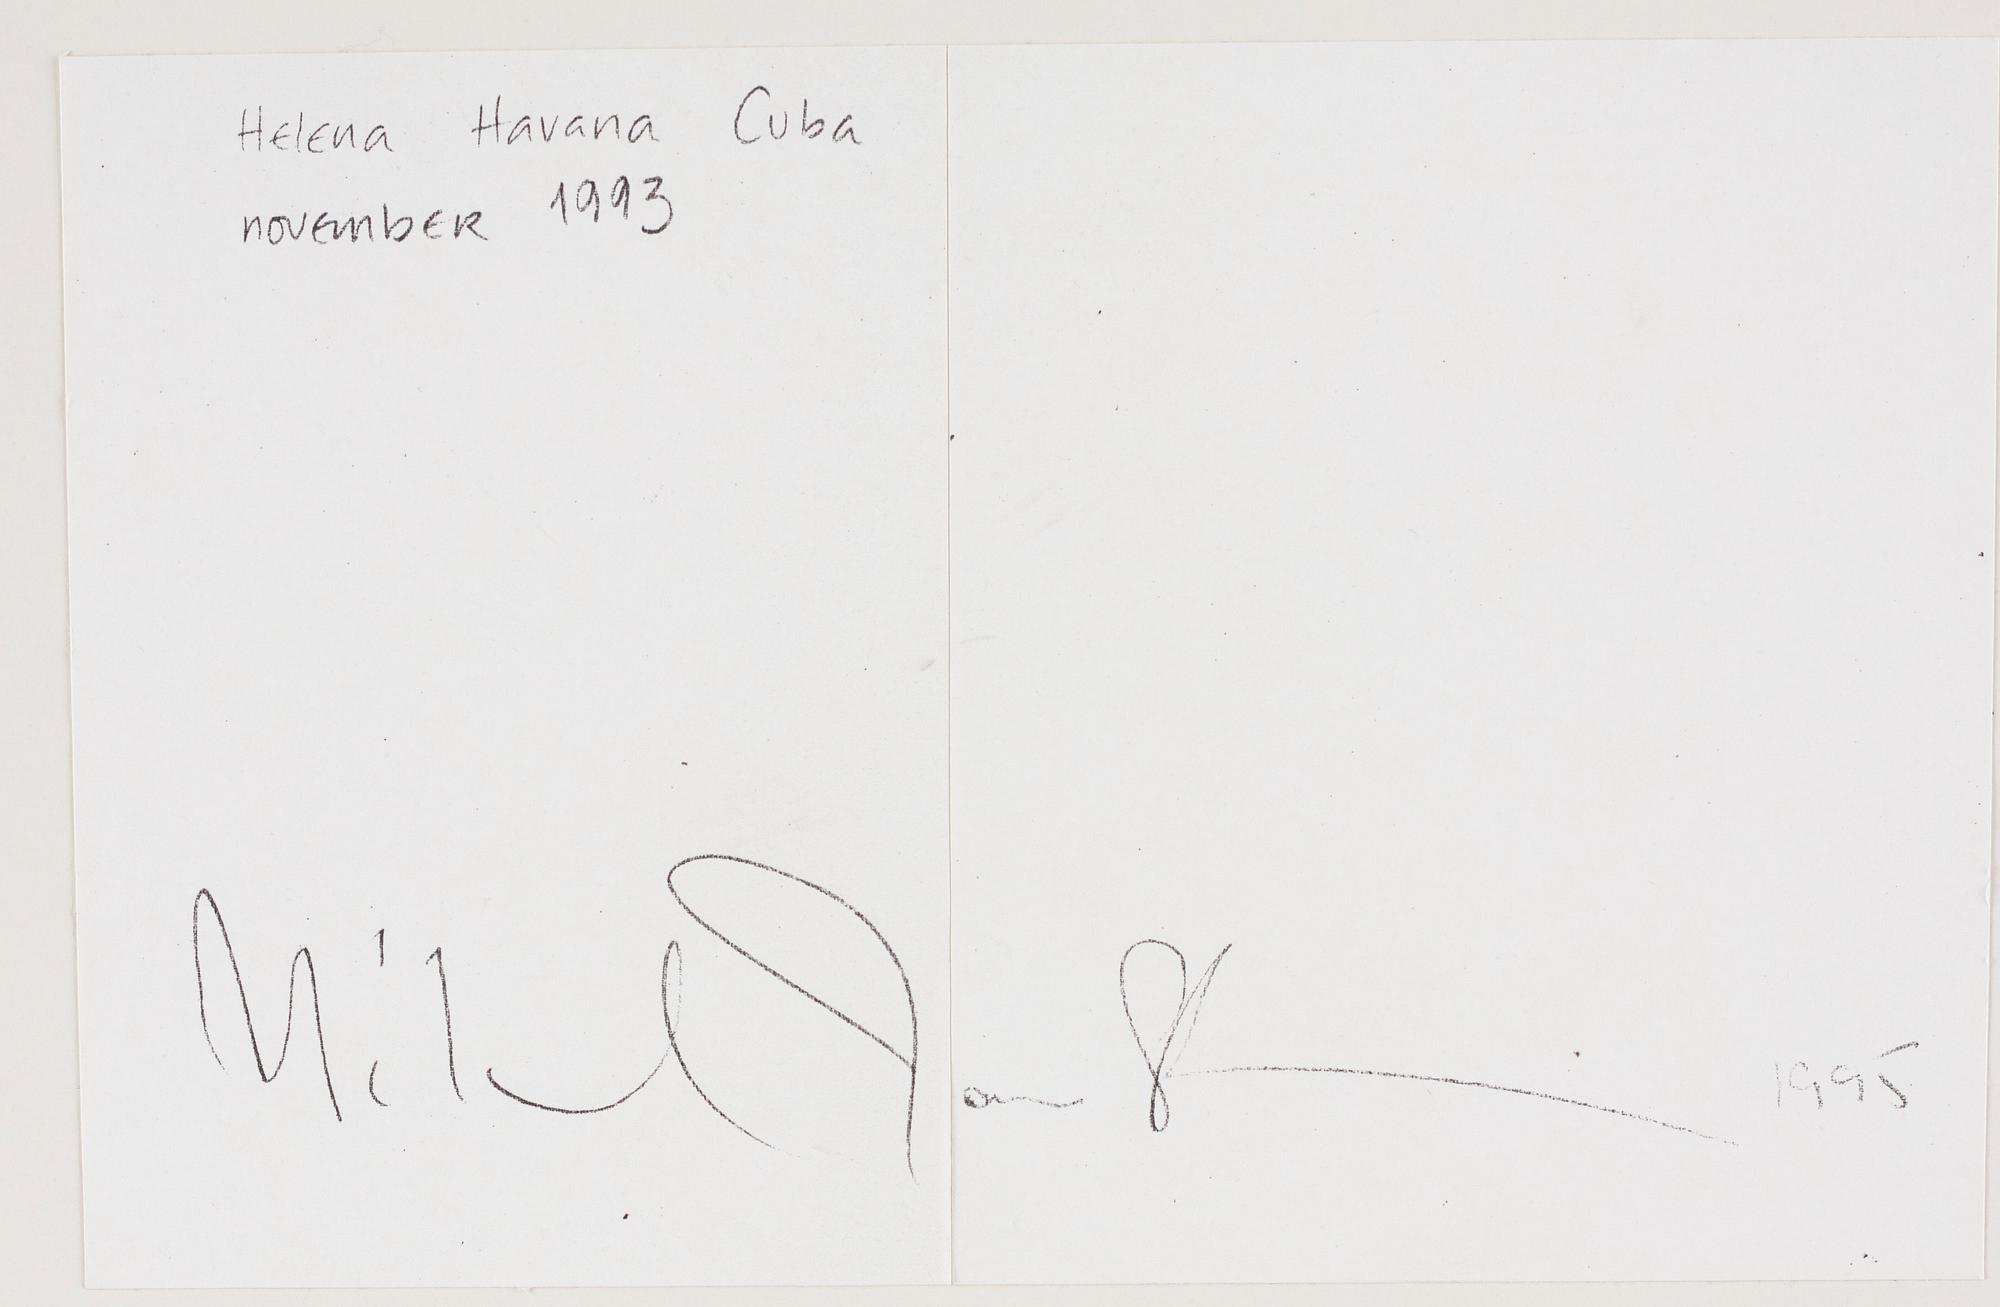 Helena Havana Cuba
november 1993
1995